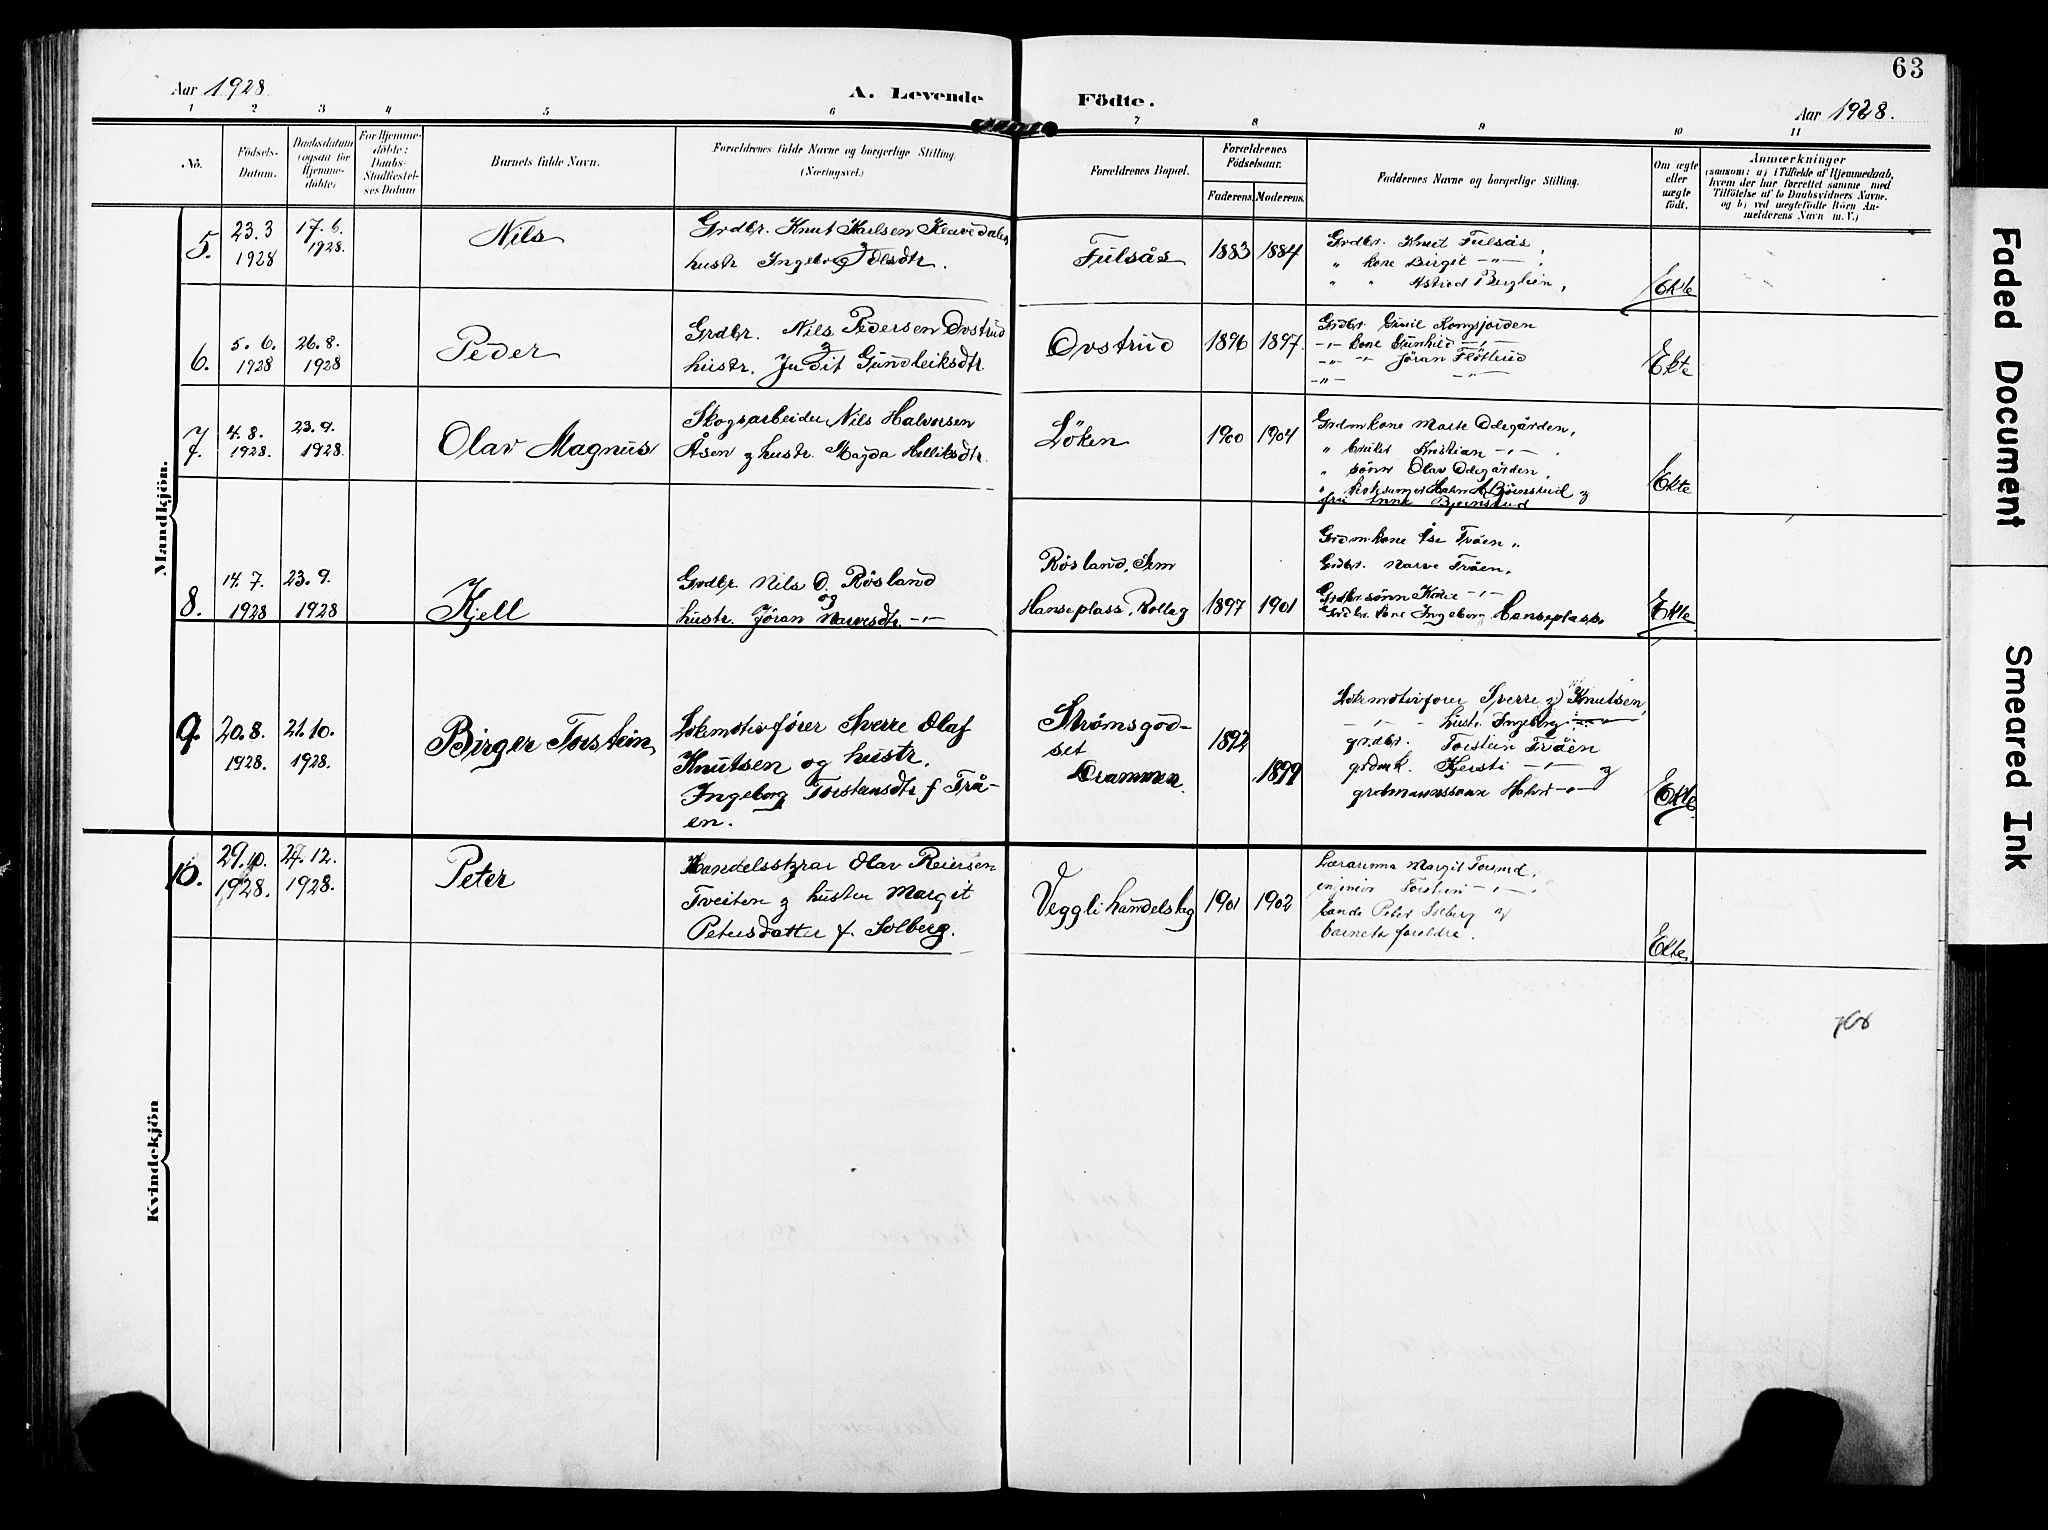 63
Aar 1928
A. Levende Födte.
Aar 1928.
1 2 3 4 5 6 7 8 9 10 11
No.
Födsels-
Datum.
Daabsdatum
(ogsaa for
Hjemme-
döbte)
For Hjemme-
döbte:
Daabs-
Stadfæstel-
ses Datum
Barnets fulde Navn.
Forældrenes fulde Navne og borgerlige Stilling.
(Næringsvei.)
Forældrenes Bopæl.
Forældrenes
Födselsaar.
Faderens
Moderens.
Faddernes Navne og borgerlige Stilling.
Om ægte
eller
uægte
födt.
Anmærkninger
(saasom: a) i Tilfælde af Hjemmedaab,
hvem der har forrettet samme med
Tilföielse af to Daabsvidners Navne.
og b) ved uægtefödte Börn An-
melderens Navn m. V.)
Mandkjön.
5.
23.3
1928
17.6.
1928.
Nils
Grdbr. Knut
hustr Ingeborg
Fulsås
1883
1884
Grdbr. Knut Fulsås,
" kone Birget -"-
" " Astrid Berglien,
Ekte
6.
5.6.
1928
26.8.
1928
Peder
Grdbr. Nils Pedersen Ovstrud
hustr. Judit Gundleiksdtr.
Ovstrud
1896
1897.
Grdbr. Kongsjorden
-"- kone Gunhild -"-
-"- " Jöran Flötterud
-"- -"-
Ekte
7.
4.8.
1928.
23.9.
1928.
Olav Magnus
Skogsarbeider Nils Halvorsen
Åsen og hustr. Magda Helliksdtr.
Löken
1900
1904
Grdmkone Marte Ödegården,
" Kristian -"-
" sönn Olav Ödegården,
Björnstud og
fru Anne Bjørnstud
Ekte
8.
14.7.
1928
23.9.
1928
Kjell
Grdbr. Nils O. Rösland
og
hustr. Jöran Narvesdtr. -"-
Rösland,
Hanseplass, Rollag
1897
1901
Grdmkone Åse Tråen,
Grdbr. Narve Tråen,
Grdbrsönn -"-
Grdbr. kone Ingeborg Hanseplass.
Ekte
9.
20.8.
1928.
21.10.
1928.
Birger Torstein
Lokomotivfører Sverre Olaf
Knutsen og hustr.
Ingeborg Torstensdtr f. Trå-
en.
Strömsgod-
set
Drammen.
1892
1899
Lokomotivfører Sverre O. Knutsen,
-"- hustr. Ingeborg -"-
grdbr. Torstein Tråen
grdmk. Kjersti -"- og
grdmannssönn Halvor -"-
Ekte.
10.
29.10.
1928.
27.12.
1928.
Peter
Handelsstyrar Olav Reiersen
Tveiten og hustru Margit
Petersdatter f. Solberg.
Veggli handelslag
1901
1902
Lærarinna Margit Torsrud,
injeniör Torstein -"-
Peter Solberg og
barnets foreldre.
Ekte.
Kvindekjön
Faded Document
Smeared Ink